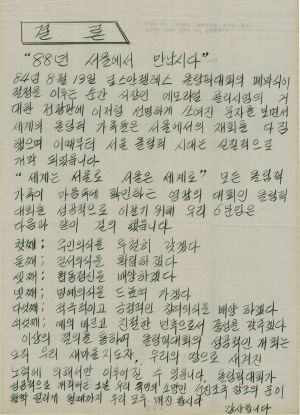 결론
"88년 서울에서 만납시다"
84년 8월 13일 로스안젤레스 올림픽대회의 폐막식이
절정을 이루는 순간 식장인 메모리얼 콜리시엄의 거
대한 전광판에 이처럼 선명하게 쓰여진 문자를 보면서
세계의 올림픽 가족들은 서울에서의 재회를 다짐
했으며 이때부터 서울 올림픽 시대는 실질적으로
개막 되었읍니다
"세계는 서울로 서울은 세계로" 모든 올림픽
가족이 마음속에 확인하는 영광의 대회인 올림픽
대회를 성공적으로 이끌기 위해 우리 6분단은
다음과 같이 결의 했읍니다
첫째; 주인의식을 투철히 갖겠다
둘째; 질서의식을 확립하겠다
셋째; 협동정신을 배양하겠다
넷째; 명예의식을 드높여 가겠다
다섯째; 적극적이고 긍정적인 참여의식을 배양 하겠다
여섯째; 예의 바르고 친절한 민족으로서 품성을 갖추겠다
이상의 결의를 통하여 올림픽대회의 성공적인 개최는
오직 우리 새마을지도자, 우리의 땀으로 새겨진
노력에 의해서만 이루어질 수 있읍니다, 올림픽대회가
성공적으로 개최되는 우리 선진조국 창조의 꿈이
활짝 열리게 될때까지 우리 모두 매진 합시다
감사합니다